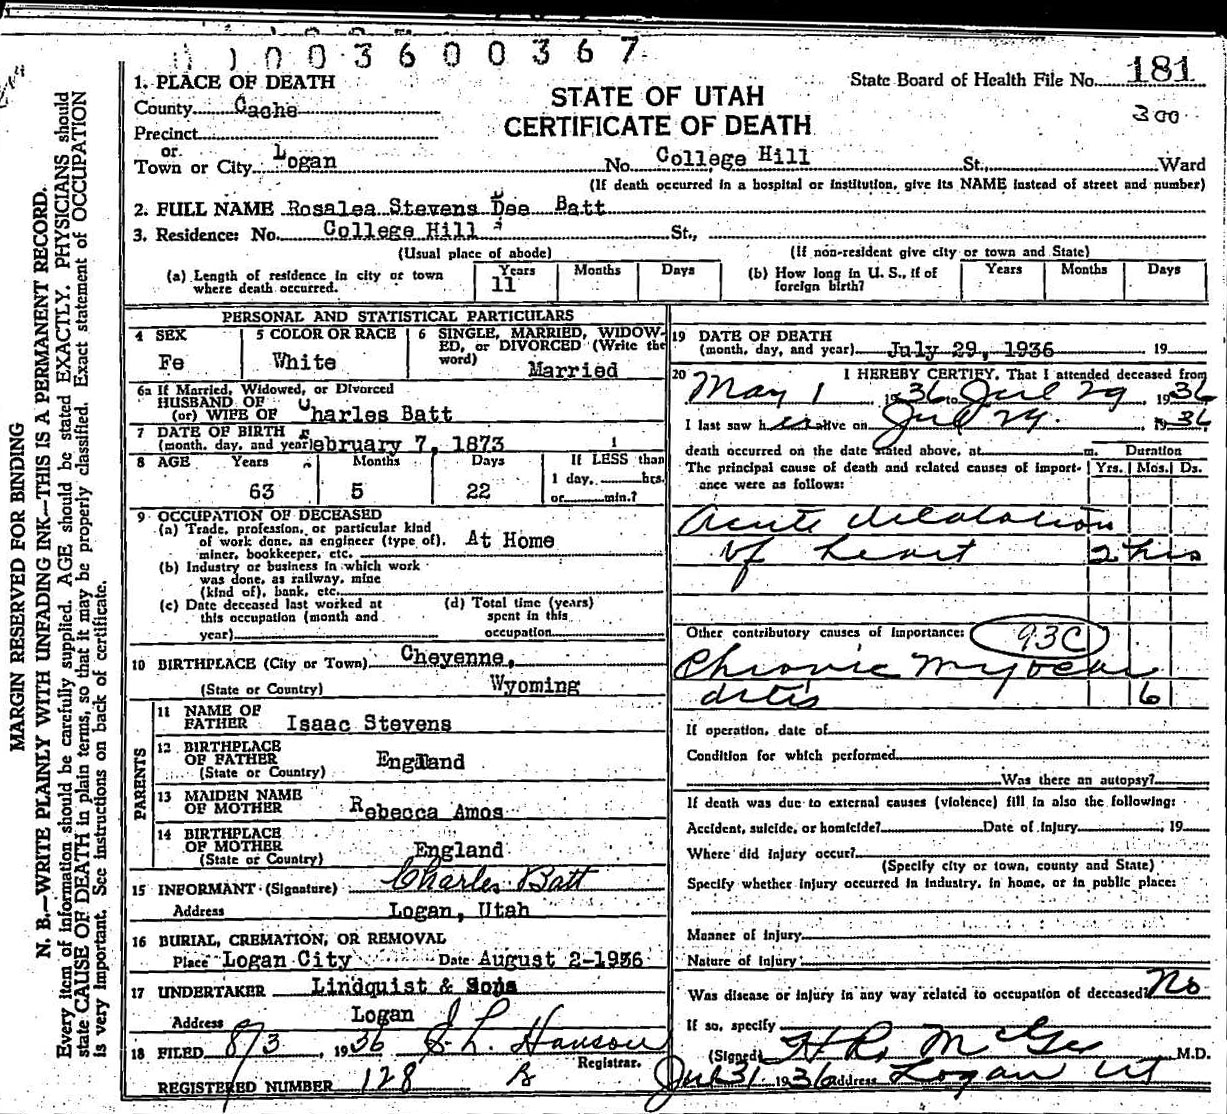 1003600367
1. PLACE OF DEATH
State Board of Health File No. 181
County Cache
STATE OF UTAH
300
Precinct
CERTIFICATE OF DEATH
or
Town or City Logan No. College Hill St., Ward
(If death occurred in a hospital or institution, give its NAME instead of street and number)
2. FULL NAME Rosalea Stevens Dee Batt
3. Residence: No. College Hill St.,
(Usual place of abode) (If non-resident give city or town and State)
(a) Length of residence in city or town where death occurred. Years 11 Months Days
(b) How long in U. S., if of foreign birth? Years Months Days
PERSONAL AND STATISTICAL PARTICULARS
4 SEX Fe
5 COLOR OR RACE White
6 SINGLE, MARRIED, WIDOW-
ED, or DIVORCED (Write the
word) Married
6a If Married, Widowed, or Divorced
HUSBAND OF
(or) WIFE OF Charles Batt
7 DATE OF BIRTH
(month, day, and year) February 7, 1873
8 AGE Years 63 Months 5 Days 22
If LESS than
1 day, hrs.
or min.?
9 OCCUPATION OF DECEASED
(a) Trade, profession, or particular kind
of work done, as engineer (type of), At Home
miner, bookkeeper, etc.
(b) Industry or business in which work
was done, as railway, mine
(kind of), bank, etc.
(c) Date deceased last worked at
this occupation (month and
year)
(d) Total time (years)
spent in this
occupation
10 BIRTHPLACE (City or Town) Cheyenne,
(State or Country) Wyoming
PARENTS
11 NAME OF
FATHER Isaac Stevens
12 BIRTHPLACE
OF FATHER England
(State or Country)
13 MAIDEN NAME
OF MOTHER Rebecca Amos
14 BIRTHPLACE
OF MOTHER England
(State or Country)
15 INFORMANT (Signature) Charles Batt
Address Logan, Utah
16 BURIAL, CREMATION, OR REMOVAL
Place Logan City Date August 2-1936
17 UNDERTAKER Lindquist & Sons
Address Logan
18 FILED 8/3, 1936 Hanson
Registrar.
REGISTERED NUMBER 128
19 DATE OF DEATH
(month, day, and year) July 29, 1936 19
20 I HEREBY CERTIFY, That I attended deceased from
May 1 1936 to Jul 29, 1936
I last saw her alive on Jul 29, 1936
death occurred on the date stated above, at m. Duration
The principal cause of death and related causes of import- Yrs. Mos. Ds.
ance were as follows:
Acute dilatation
of heart 2 hrs
Other contributory causes of importance: 93C
Chronic Myocar
ditis 6
If operation, date of
Condition for which performed
Was there an autopsy?
If death was due to external causes (violence) fill in also the following:
Accident, suicide, or homicide? Date of injury , 19
Where did injury occur?
(Specify city or town, county and State)
Specify whether injury occurred in industry, in home, or in public place:
Manner of injury
Nature of injury
Was disease or injury in any way related to occupation of deceased? No
If so, specify
(Signed) H. R. McGee M.D.
Jul 31 1936 Address Logan Ut
MARGIN RESERVED FOR BINDING
N. B.—WRITE PLAINLY WITH UNFADING INK—THIS IS A PERMANENT RECORD.
Every item of information should be carefully supplied. AGE should be stated EXACTLY. PHYSICIANS should
state CAUSE OF DEATH in plain terms, so that it may be properly classified. Exact statement of OCCUPATION
is very important. See instructions on back of certificate.